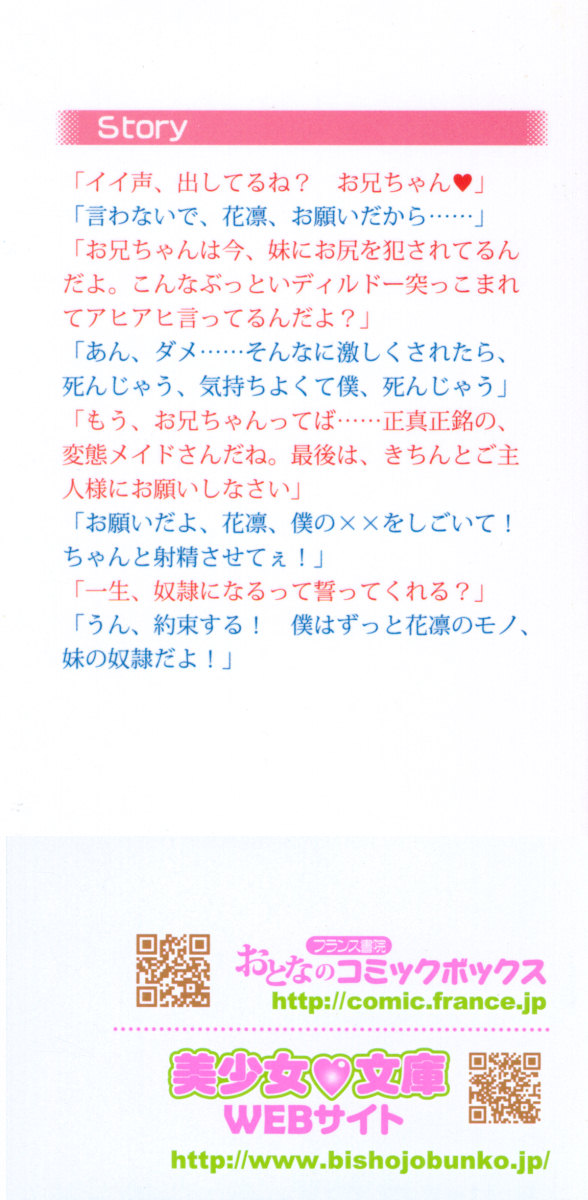 Story
「イイ声、出してるね？　お兄ちゃん♥」
「言わないで、花凛、お願いだから……」
「お兄ちゃんは今、妹にお尻を犯されてるん
だよ。こんなぶっといディルドー突っこまれ
てアヒアヒ言ってるんだよ？」
「あん、ダメ……そんなに激しくされたら、
死んじゃう、気持ちよくて僕、死んじゃう」
「もう、お兄ちゃんってば……正真正銘の、
変態メイドさんだね。最後は、きちんとご主
人様にお願いしなさい」
「お願いだよ、花凛、僕の××をしごいて！
ちゃんと射精させてぇ！」
「一生、奴隷になるって誓ってくれる？」
「うん、約束する！　僕はずっと花凛のモノ、
妹の奴隷だよ！」
フランス書院
おとなのコミックボックス
http://comic.france.jp
美少女♥文庫
WEBサイト
http://www.bishojobunko.jp/